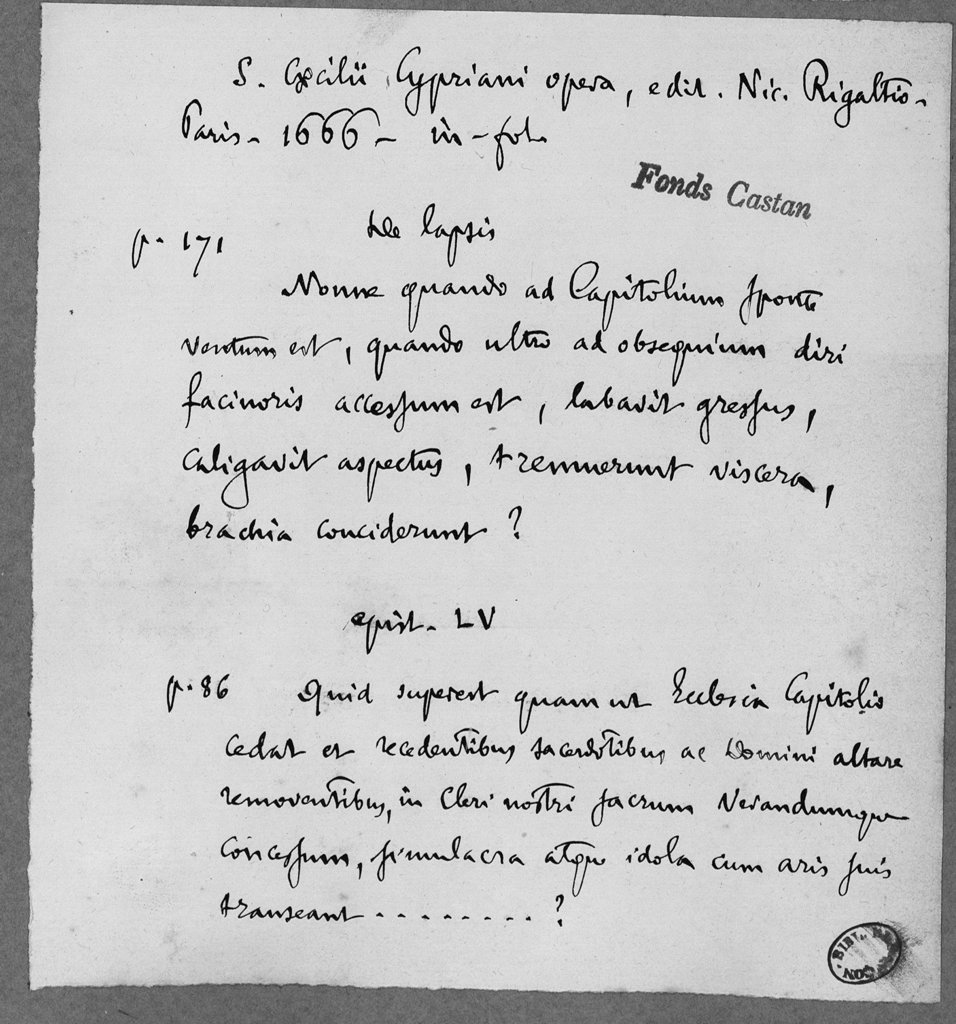 S. Cæcilii Cypriani opera, edit. Nic. Rigaltio.
Paris. 1666. in-fol.
Fonds Castan
De lapsis
p. 171
Nonne quando ad Capitolium sponte
ventum est, quando ultro ad obsequium diri
facinoris accessum est, labavit gressus,
caligavit aspectus, tremuerunt viscera,
brachia conciderunt ?
epist. LV
p. 86 Quid superest quam ut Ecclesia Capitolio
cedat et recedentibus sacerdotibus ac Domini altare
removentibus, in Cleri nostri sacrum Venandumque
concessum, simulacra atque idola cum aris suis
transeant . . . . . . . . ?
BIBL. BESANCON